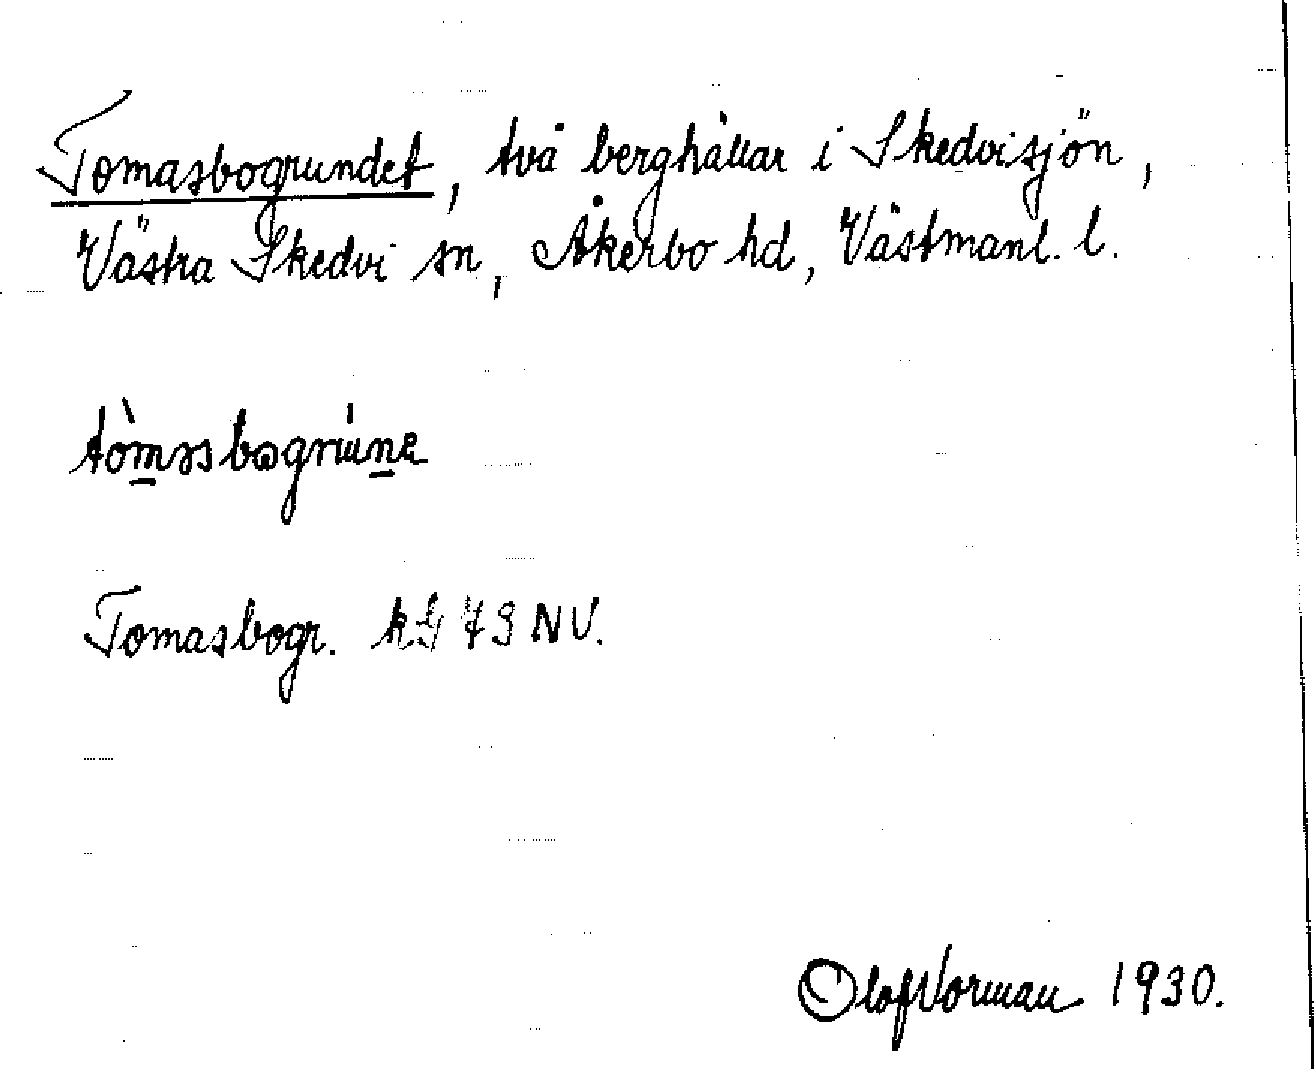 Tomasbogrundet, två berghällar i Skedvisjön,
Västra Skedvi sn, Åkerbo hd, Västmanl. l.
Tomasbogr. NV.
Olof Norman 1930.